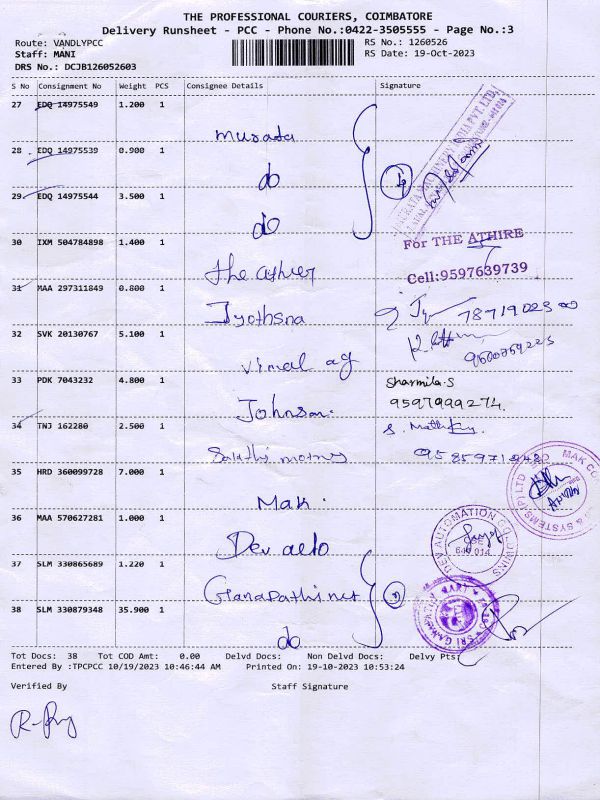 THE PROFESSIONAL COURIERS, COIMBATORE
Delivery Runsheet - PCC - Phone No.:0422-3505555 - Page No.:3
Route: VANDLYPCC RS No.: 1260526
Staff: MANI RS Date: 19-Oct-2023
DRS No.: DCJB126052603
S No Consignment No Weight PCS Consignee Details Signature
27 EDQ 14975549 1.200 1
murata
28 EDQ 14975539 0.900 1
do
29 EDQ 14975544 3.500 1
do
30 IXM 504784898 1.400 1
For THE ATHIRE
the athier
Cell:9597639739
31 MAA 297311849 0.800 1
Jyothsna
32 SVK 20130767 5.100 1
vimal ag
33 PDK 7043232 4.800 1
Sharmila.S
Johnson.
9597999274.
34 TNJ 162280 2.500 1
35 HRD 360099728 7.000 1
Mak.
36 MAA 570627281 1.000 1
Dev auto
DEV AUTOMATION
641 014
37 SLM 330865689 1.220 1
38 SLM 330879348 35.900 1
do
Tot Docs: 38 Tot COD Amt: 0.00 Delvd Docs: Non Delvd Docs: Delvy Pts:
Entered By :TPCPCC 10/19/2023 10:46:44 AM Printed On: 19-10-2023 10:53:24
Verified By Staff Signature